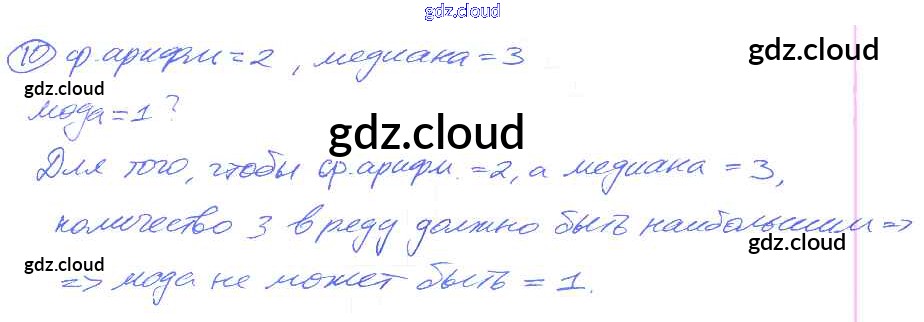 gdz.cloud
10 ср. арифм = 2, медиана = 3
gdz.cloud
gdz.cloud
мода = 1?
gdz.cloud
Для того, чтобы ср. арифм. = 2, а медиана = 3,
количество 3 в реду должно быть наибольшим =>
gdz.cloud
gdz.cloud
=> мода не может быть = 1.